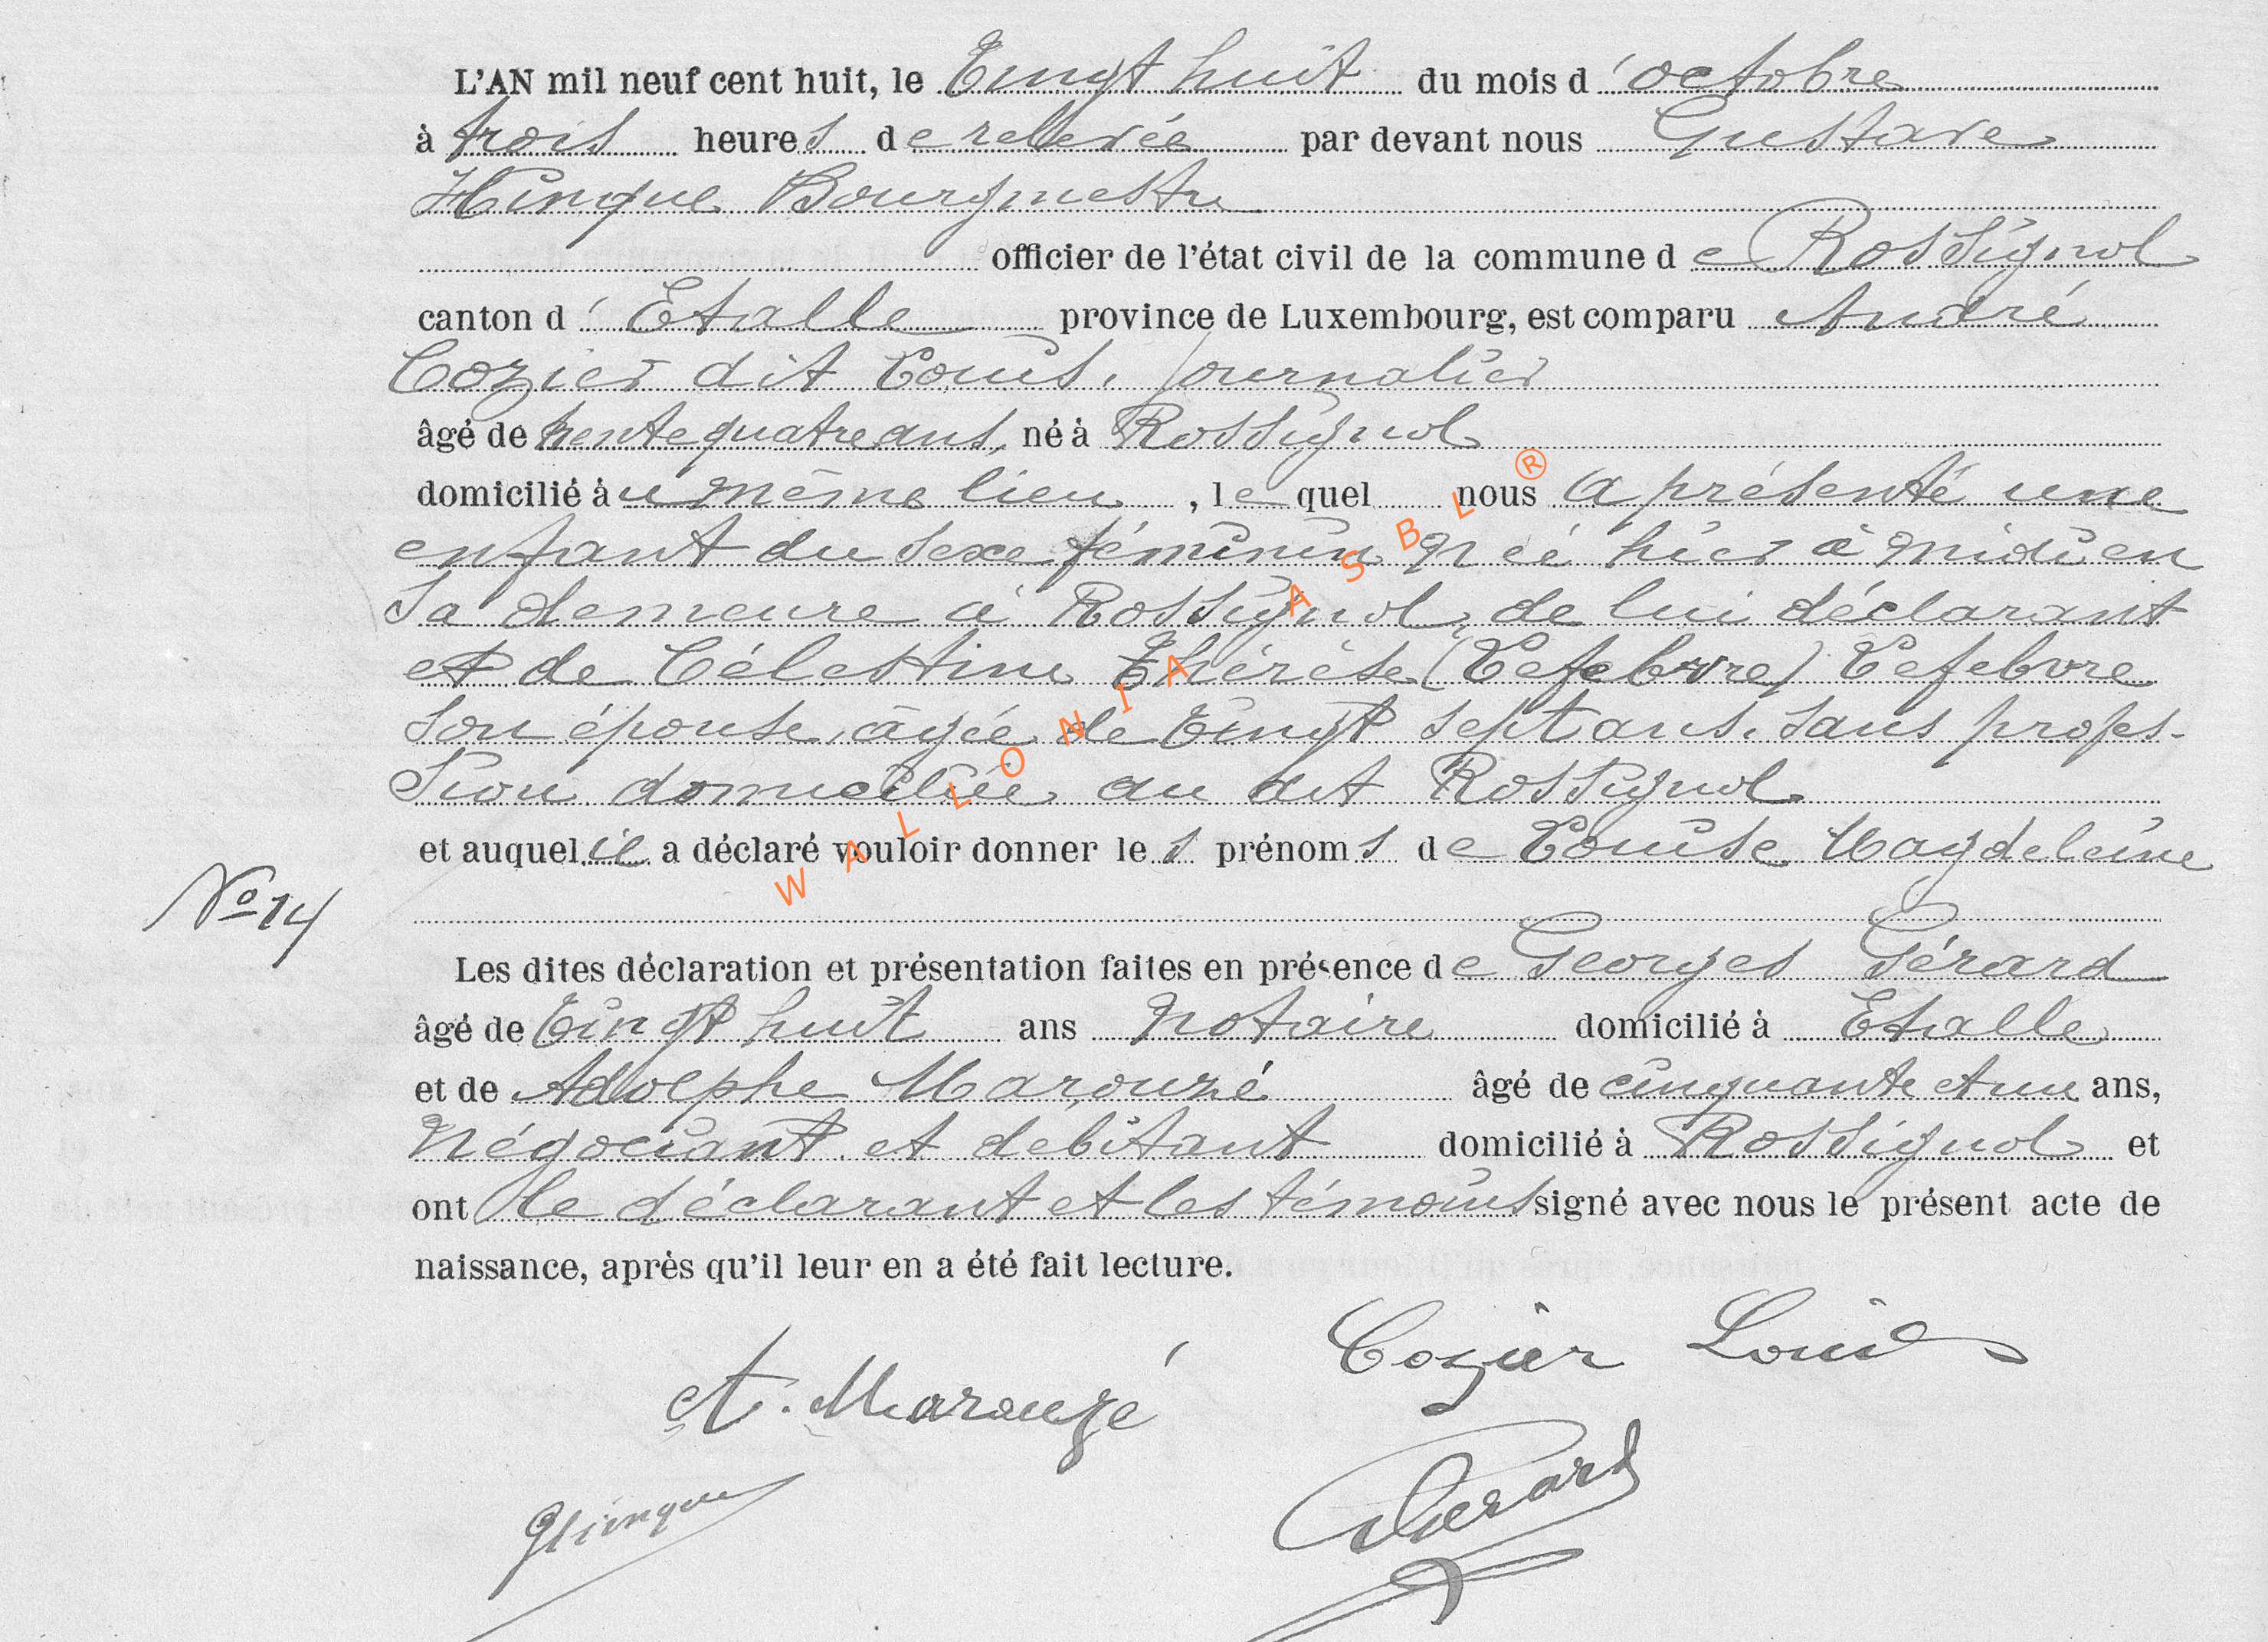 L'AN mil neuf cent huit, le Vingt huit du mois d'octobre
à trois heures de relevée par devant nous Gustave
Hinque Bourgmestre
officier de l'état civil de la commune de Rossignol
canton d'Etalle province de Luxembourg, est comparu André
Cozier dit Louis, journalier
âgé de trente quatre ans, né à Rossignol
domicilié au même lieu, lequel nous a présenté une
enfant du sexe féminin née hier à midi en
sa demeure à Rossignol, de lui déclarant
et de Célestine Thérèse (Lefebvre) Lefebvre
son épouse, âgée de vingt sept ans, sans profes-
sion domiciliée au dit Rossignol
et auquel il a déclaré vouloir donner les prénoms de Louise Magdeleine
No 14
Les dites déclaration et présentation faites en présence de Georges Gérard
âgé de Vingt huit ans notaire domicilié à Etalle
et de Adolphe Marouzé âgé de cinquante et un ans,
Négociant et debitant domicilié à Rossignol et
ont le déclarant et les témoins signé avec nous le présent acte de
naissance, après qu'il leur en a été fait lecture.
Cozier Louis
A. Marouzé
Gérard
GHinque
WALLONIA ASBL ®